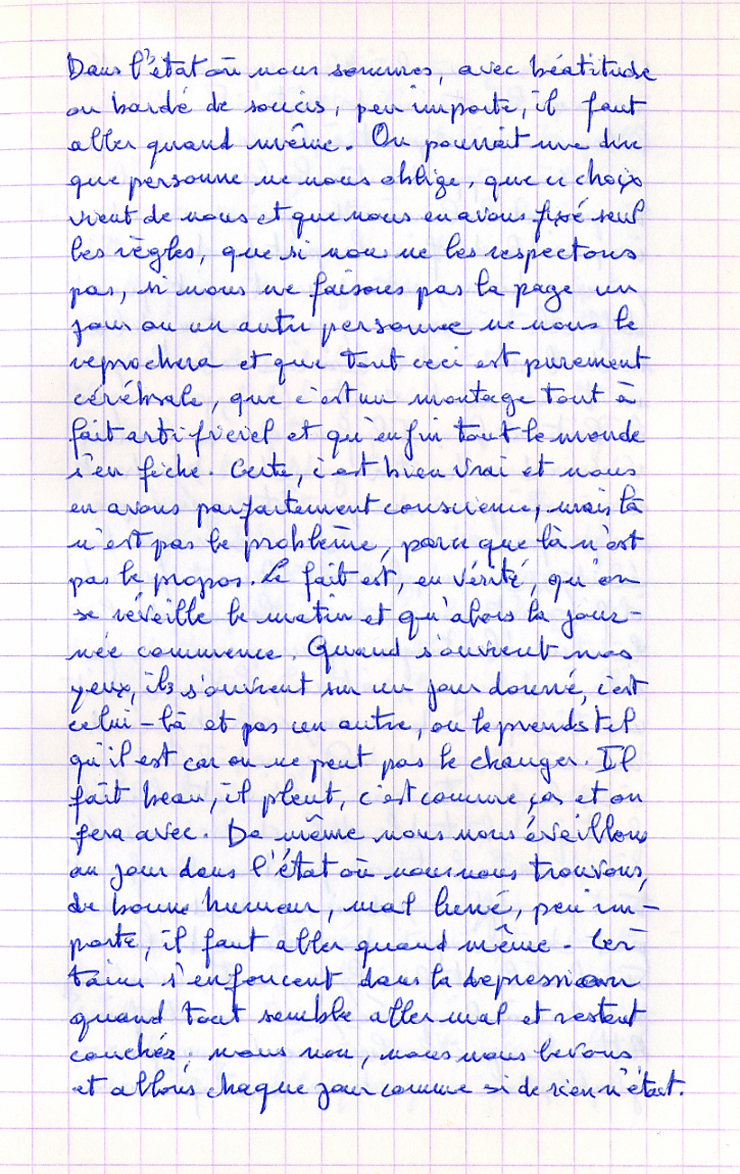 Dans l'état où nous sommes, avec béatitude
ou bardé de soucis, peu importe, il faut
aller quand même. On pourrait me dire
que personne ne nous oblige, que ce choix
vient de nous et que nous en avons fixé seul
les règles, que si nous ne les respectons
pas, si nous ne faisons pas la page un
jour ou un autre personne ne nous le
reprochera et que tout ceci est purement
cérébrale, que c'est un montage tout à
fait artificiel et qu'enfin tout le monde
s'en fiche. Certe, c'est bien vrai et nous
en avons parfaitement conscience, mais là
n'est pas le problème, parce que là n'est
pas le propos. Le fait est, en vérité, qu'on
se réveille le matin et qu'alors la jour-
née commence. Quand s'ouvrent nos
yeux, ils s'ouvrent sur un jour donné, c'est
celui-là et pas un autre, on le prends tel
qu'il est car on ne peut pas le changer. Il
fait beau, il pleut, c'est comme ça et on
fera avec. De même nous nous éveillons
au jour dans l'état où nous nous trouvons,
de bonne humeur, mal luné, peu im-
porte, il faut aller quand même. Cer-
tains s'enfoncent dans la depression
quand tout semble aller mal et restent
couchés; nous non, nous nous levons
et allons chaque jour comme si de rien n'était.